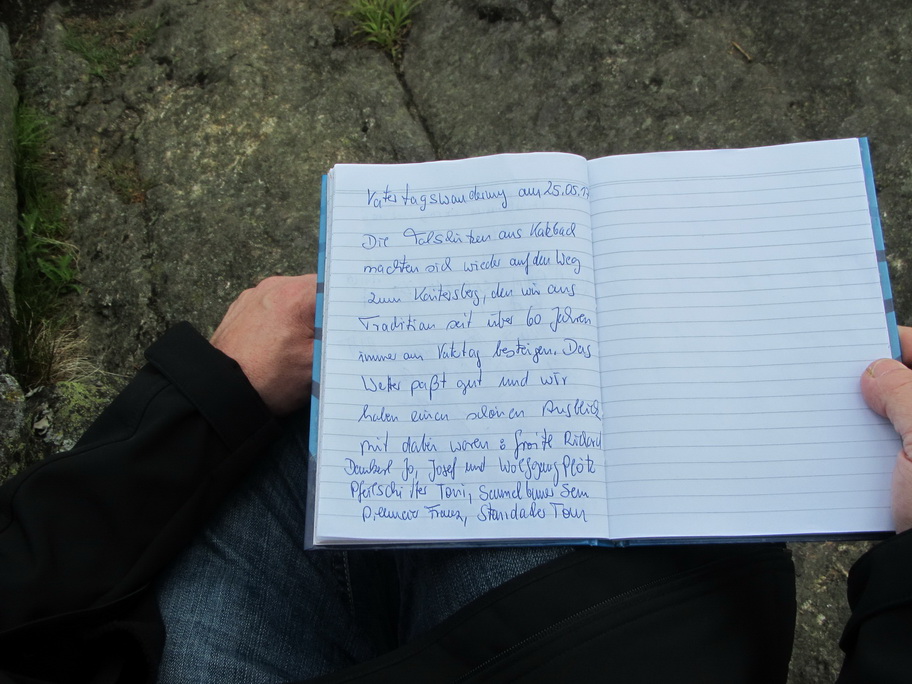 Vatertagswanderung am 25.05.
Die aus
machten sich wieder auf den Weg
zum Kaitersberg, den wir aus
Tradition seit über 60 Jahren
immer am Vatertag besteigen. Das
Wetter paßt gut und wir
haben einen schönen Ausblick
mit dabei waren : Richard
Jo, Josef und Wolfgang
Toni,
Franz, Tom